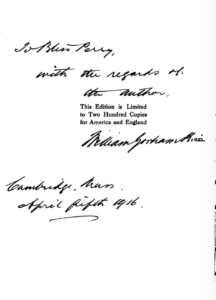 To Bliss Perry,
with the regards of
the author.
This Edition is Limited
to Two Hundred Copies
for America and England
William Gorham Rice
Cambridge, Mass
April fifth 1916.